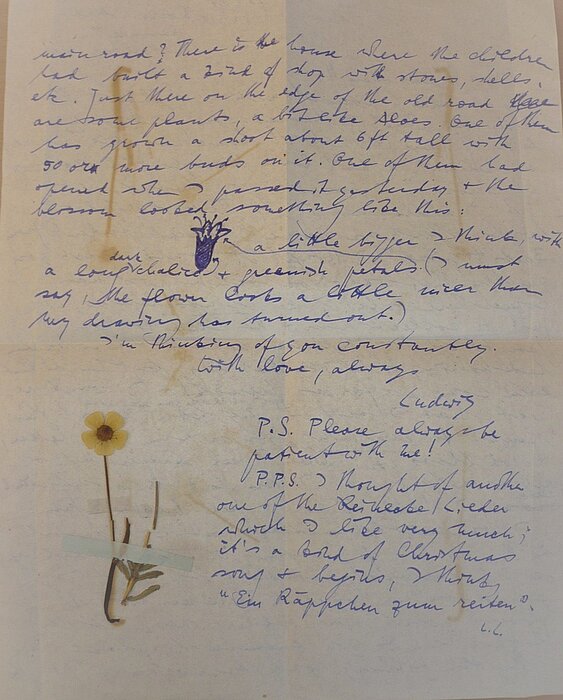 main road? There is the house where the children
had built a kind of shop with stones, shells,
etc. Just there on the edge of the old road there
are some plants, a bit like Aloes. One of them
has grown a shoot about 6ft tall with
50 or more buds on it. One of them had
opened when I passed it yesterday & the
blossom looked something like this:
a little bigger I think, with
a long dark "chalice" & greenish petals. (I must
say, the flower looks a little nicer than
my drawing has turned out.)
I'm thinking of you constantly.
With love, always
Ludwig
P.S. Please always be
patient with me!
P.P.S. I thought of another
one of the Reinecke Lieder
which I like very much;
it's a kind of Christmas
song & begins, I think,
"Ein Räppchen zum reiten".
L.L.